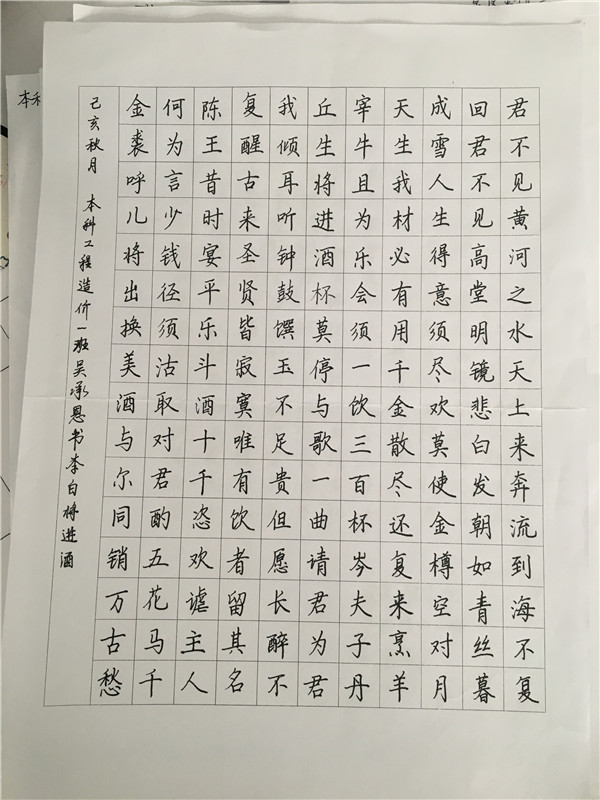 君不见黄河之水天上来奔流到海不复
回君不见高堂明镜悲白发朝如青丝暮
成雪人生得意须尽欢莫使金樽空对月
天生我材必有用千金散尽还复来烹羊
宰牛且为乐会须一饮三百杯岑夫子丹
丘生将进酒杯莫停与歌一曲请君为君
我倾耳听钟鼓馔玉不足贵但愿长醉不
复醒古来圣贤皆寂寞唯有饮者留其名
陈王昔时宴平乐斗酒十千恣欢谑主人
何为言少钱径须沽取对君酌五花马千
金裘呼儿将出换美酒与尔同销万古愁
己亥秋月 本科工程造价一班吴承恩书李白将进酒
本